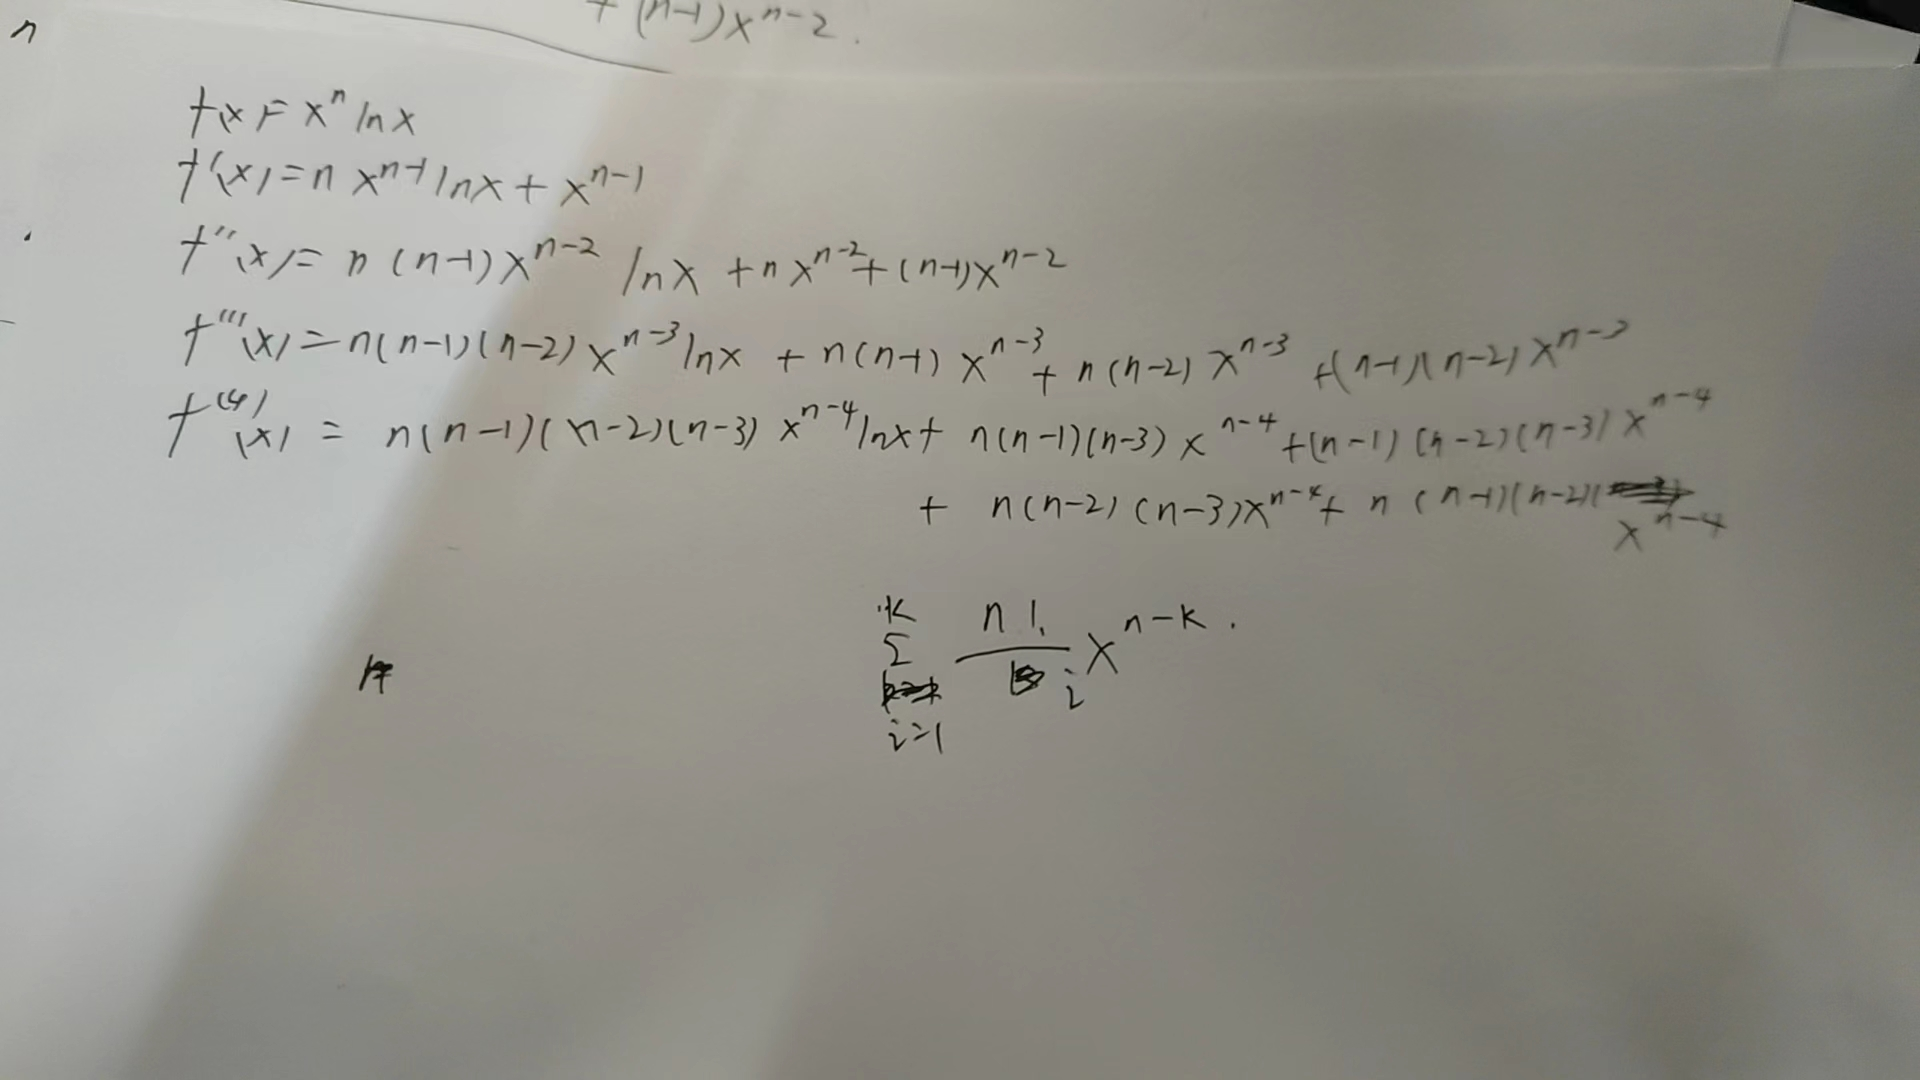 + (n-1)x^{n-2}.
n
f(x)= x^n ln x
f'(x)= n x^{n-1} lnx + x^{n-1}
f''(x)= n (n-1)x^{n-2} ln x + n x^{n-2} + (n-1)x^{n-2}
f'''(x) = n(n-1)(n-2) x^{n-3} lnx + n(n-1) x^{n-3} + n(n-2) x^{n-3} + (n-1)(n-2) x^{n-3}
f^{(4)}(x) = n(n-1)(n-2)(n-3) x^{n-4} lnx + n(n-1)(n-3) x^{n-4} + (n-1)(n-2)(n-3) x^{n-4}
+ n(n-2)(n-3)x^{n-4} + n(n-1)(n-2) x^{n-4}
\sum_{i=1}^{k} \frac{n!}{i} x^{n-k}.